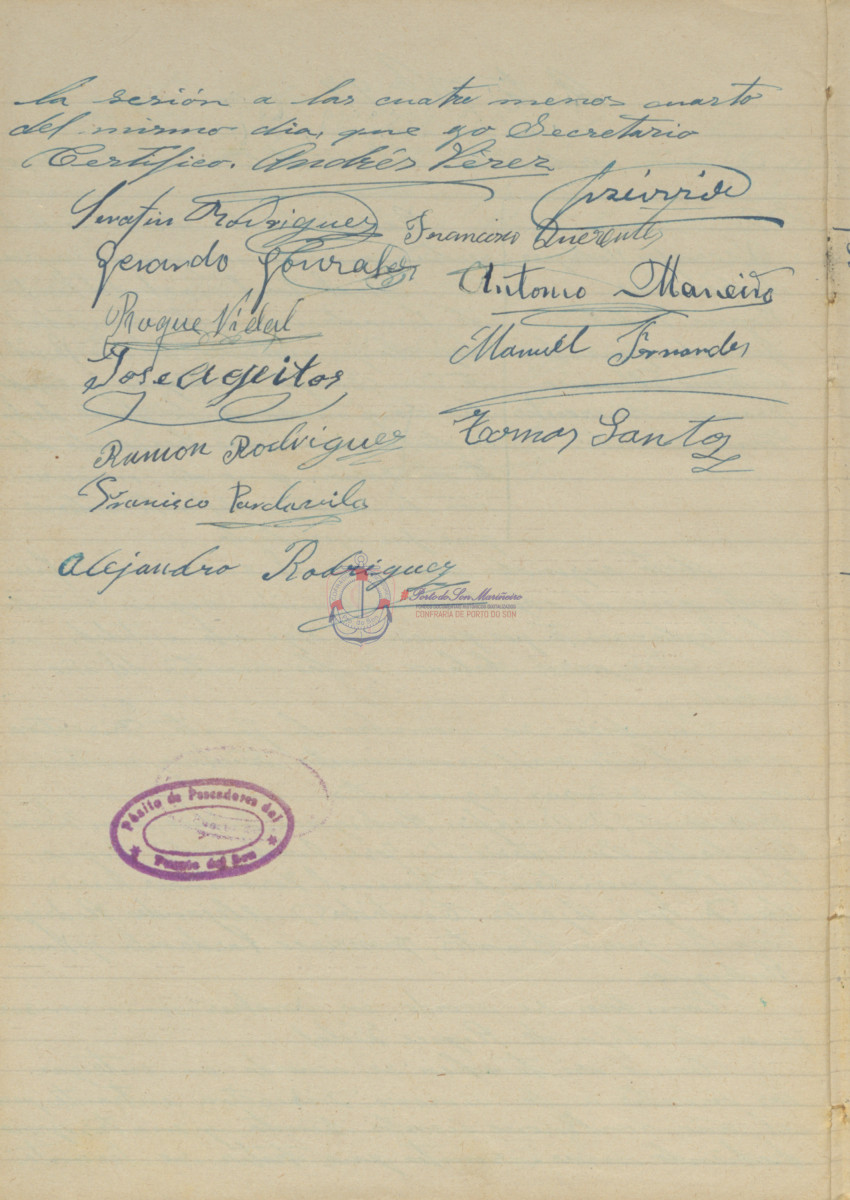 la sesión a las cuatro menos cuarto
del mismo dia, que yo Secretario
Certifico. Andrés Pérez
Serafin Rodriguez
Francisco
Gerardo Gonzalez
Antonio Maneiro
Roque Vidal
Manuel Fernandez
Jose Ageitos
Tomas Santos
Ramon Rodriguez
Francisco Pardavila
Alejandro Rodriguez
Porto do Son Mariñeiro
CONFRARÍA DE PORTO DO SON
Pósito de Pescadores del
Puerto del Son